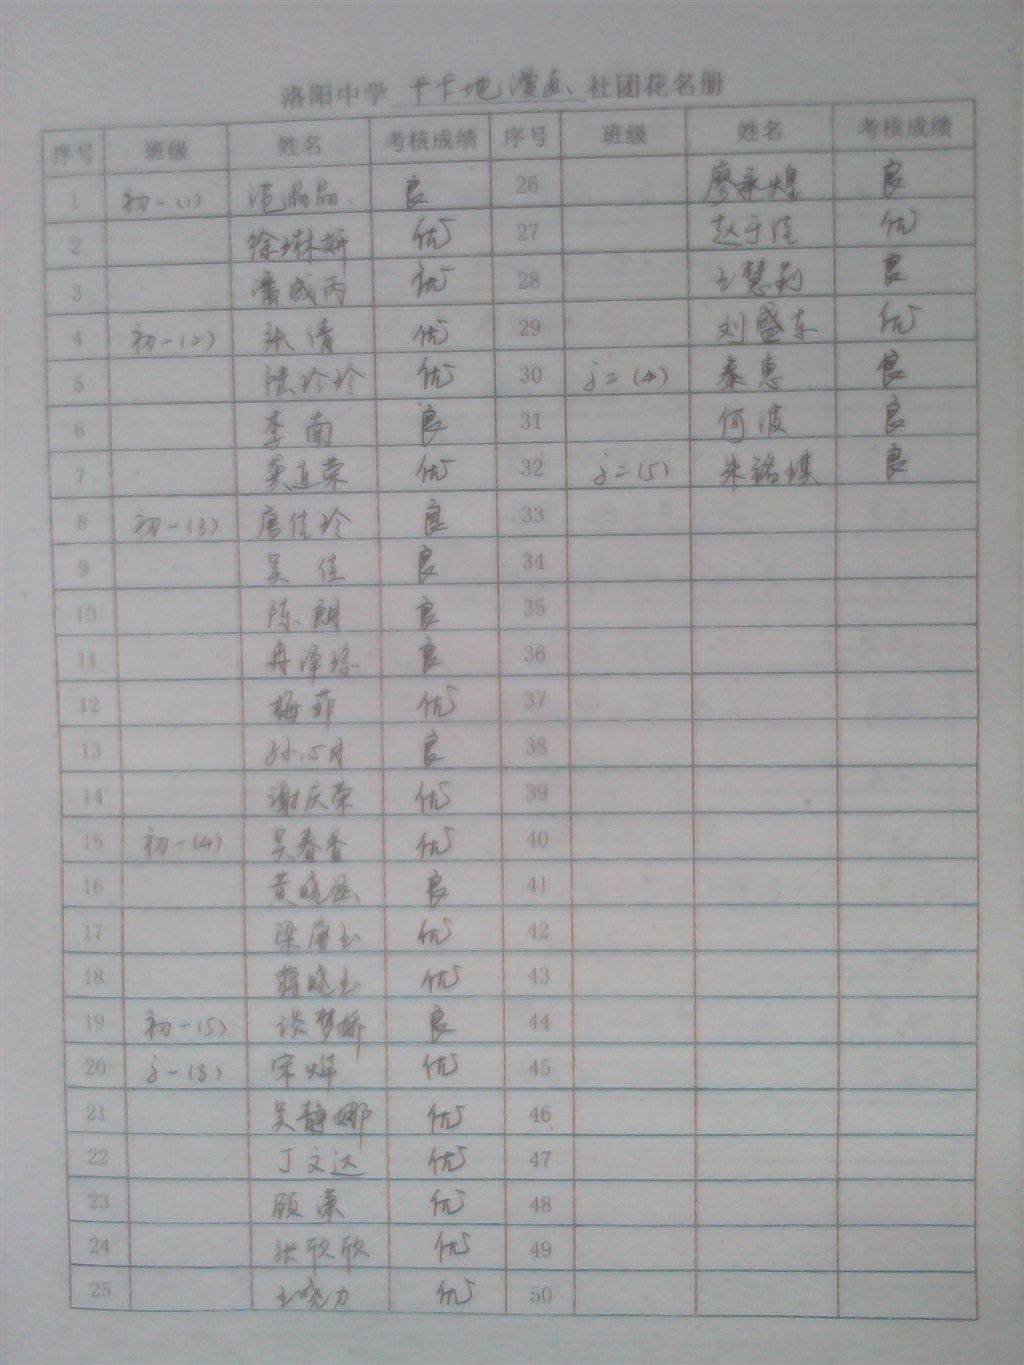 洛阳中学 卡卡地漫画 社团花名册
序号 班级 姓名 考核成绩 序号 班级 姓名 考核成绩
1 初一(1) 范晶晶 良 26 廖承煌 良
2 徐琳妍 优 27 赵于佳 优
3 潘成丙 优 28 王慧莉 良
4 初一(2) 张倩 优 29 刘盛东 优
5 陆玲玲 优 30 初二(4) 秦惠 良
6 李南 良 31 何波 良
7 龚道荣 优 32 初二(5) 朱铭琪 良
8 初一(3) 唐佳玲 良 33
9 吴佳 良 34
10 陈朗 良 35
11 冉泽琼 良 36
12 梅菲 优 37
13 孙心月 良 38
14 谢庆荣 优 39
15 初一(4) 吴春香 优 40
16 黄晓 良 41
17 梁唐玉 优 42
18 蒋晓玉 优 43
19 初一(5) 谈梦娇 良 44
20 初一(8) 宋烨 优 45
21 吴静娜 优 46
22 丁文达 优 47
23 顾 优 48
24 张欣欣 优 49
25 王晓力 优 50